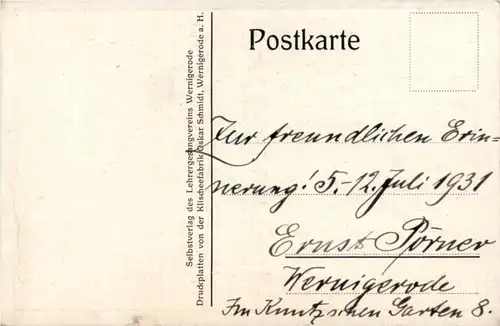 Postkarte
Selbstverlag des Lehrergesangvereins Wernigerode
Druckplatten von der Klischeefabrik Oskar Schmidt, Wernigerode a. H.
Zur freundlichen Erin-
nerung! 5.-12. Juli 1931
Ernst Pörner
Wernigerode
Im Kuntzschen Garten 8.